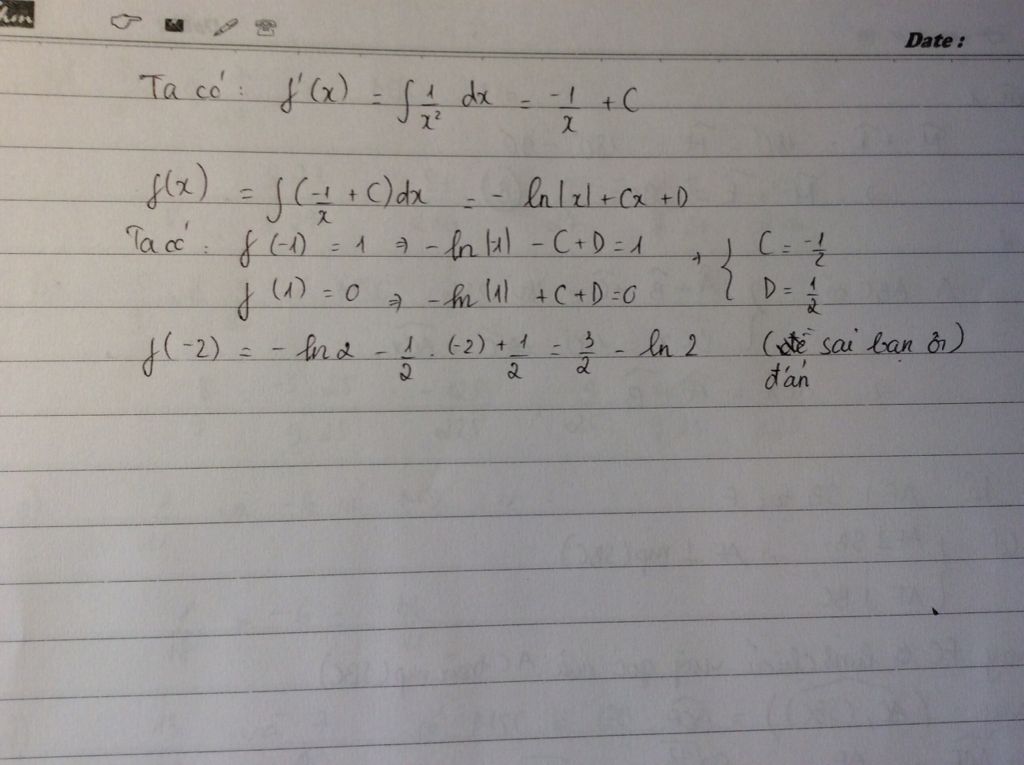 Date :
Ta có : f'(x) = ∫ 1/x² dx = -1/x + C
f(x) = ∫ (-1/x + C) dx = - ln|x| + Cx + D
Ta có : f(-1) = 1 ⇒ - ln|1| - C + D = 1 → { C = -1/2
f(1) = 0 ⇒ - ln|1| + C + D = 0 D = 1/2
f(-2) = - ln 2 - 1/2 . (-2) + 1/2 = 3/2 - ln 2 (đề sai bạn ơi)
đán